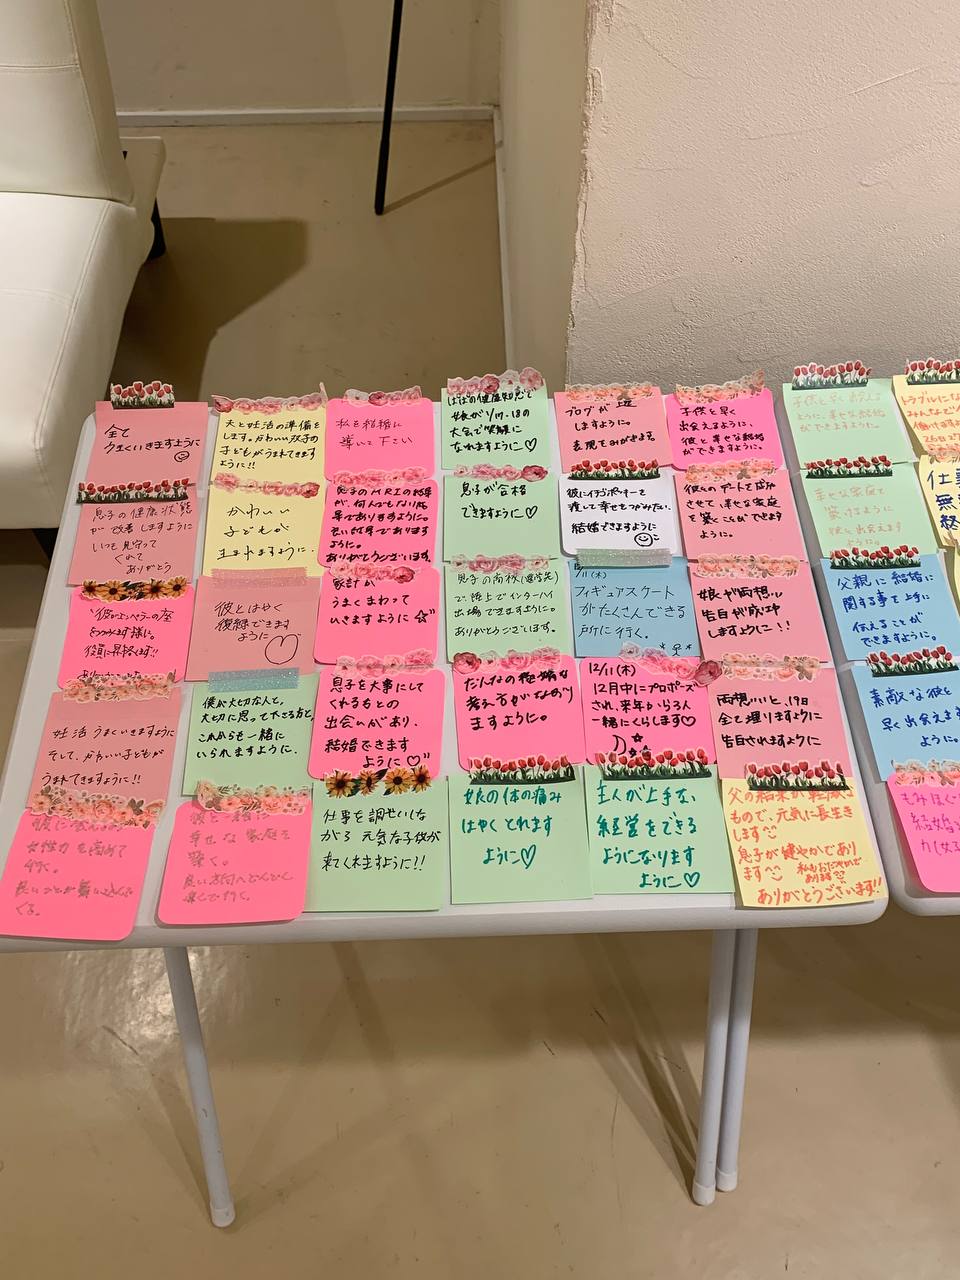 全て
うまくいきますように
夫と妊活の準備を
します。かわいい双子の
子どもがうまれてきます
ように!!
私を結婚に
導いて下さい
娘が1/17.18の
大会で笑顔に
なれますように♡
ブログが上達
しますように。
子供と早く
出会えるように、
彼と幸せな結婚
ができますように。
子供と早く出会える
ように、幸せな結婚
ができますように。
トラブルにな
みんなで
働けます
息子の健康状態
が改善しますように
いつも見守って
くれて
ありがとう
かわいい
子どもが
生まれますように.
息子のMRIの結果
が、何人でもない結
果でありますように。
良い結果であります
ように。
ありがとうございます。
息子が合格
できますように♡
彼にイチゴポッキーを
渡して幸せをつかみたい.
結婚できますように
彼とのデートを成功
させて、幸せな家庭
を築くことができます
ように。
幸せな家庭を
築けますように
彼と出会えます
ように。
仕事
無
経
彼がエンペラーの座
をつかみます様に。
役員に昇格します!!
彼とはやく
復縁できます
ように♡
家計が
うまくまわって
いきますように☆
息子の高校(進学先)
で陸上でインターハイ
出場できますように。
ありがとうございます。
/11(木)
フィギュアスケート
がたくさんできる
所に行く。
娘が両想い
告白が成功
しますように!!
父親に結婚に
関する事を上手に
伝えることが
できますように。
妊活うまくいきますように
そして、かわいい子どもが
うまれてきますように!!
僕が大切な人と、
大切に思って下さる方と、
これからも一緒に
いられますように.
息子を大事にして
くれる方との
出会いがあり、
結婚できます
ように♡
だんなの極端な
考え方がなおり
ますように。
12/11(木)
12月中にプロポーズ
され、来年から3人
一緒にくらします♡
両想いと、19日
全て埋りますように
告白されますように
素敵な彼と
早く出会えます
ように。
女性力を高めて
行く。
良いことが舞い込んで
くる。
彼と一緒に
幸せな家庭を
築く。
良い方向へどんどん
進んで行く。
仕事を調整しな
がら元気な子供が
来てくれますように!!
娘の体の痛み
はやくとれます
ように♡
主人が上手な
経営をできる
ようになります
ように♡
父の結果が軽い
もので、元気に長生き
します
息子が健やかであり
ます
私もおだやかで
あります
ありがとうございます!!
もみほぐ
結婚